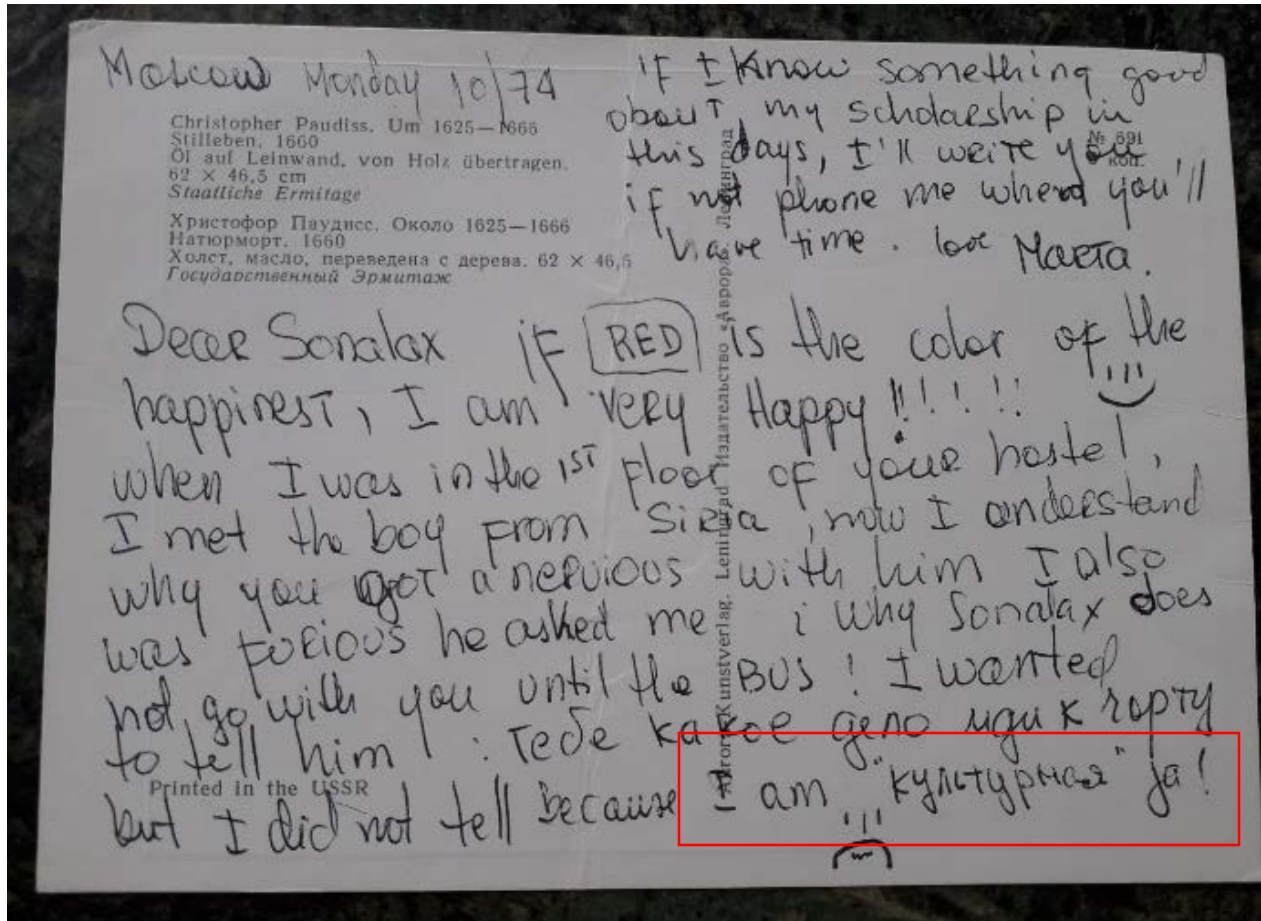 Moscow Monday 10/74
Christopher Paudiss. Um 1625—1666
Stilleben, 1660
Öl auf Leinwand, von Holz übertragen.
62 × 46,5 cm
Staatliche Ermitage
Христофор Паудисс. Около 1625—1666
Натюрморт. 1660
Холст, масло, переведена с дерева. 62 × 46,5
Государственный Эрмитаж
if I know something good
about my scholarship in
this days, I'll write you
if not phone me when you'll
have time. love Marta.
№ 691
коп.
Dear Sonalax if RED is the color of the
happinest, I am very Happy!!!!!!
when I was in the 1ST floor of your hostel,
I met the boy from Siria, now I understand
why you got a nervious with him I also
was furious he asked me ¿ why Sonalax does
not go with you until the BUS! I wanted
to tell him!: тебе какое дело иди к чорту
but I did not tell because I am "культурная" ja!
Printed in the USSR
Aurora Kunstverlag. Leningrad Издательство «Аврора». Ленинград